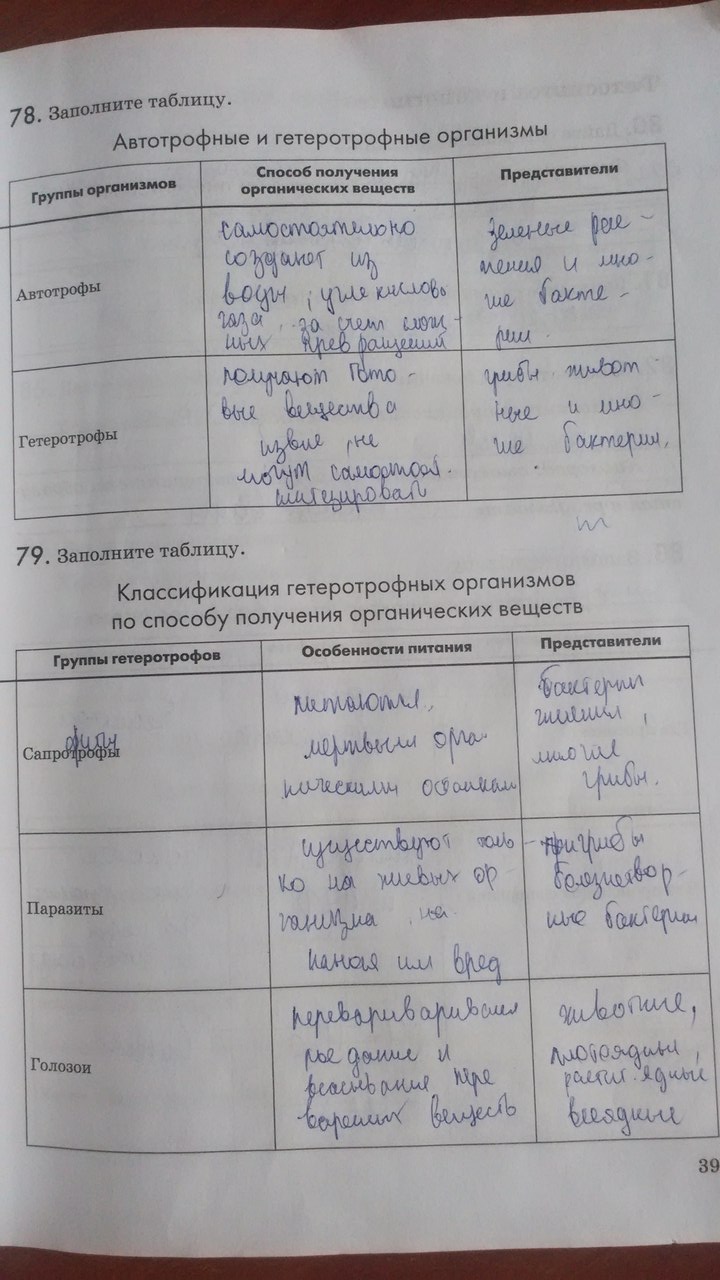 78. Заполните таблицу.
Автотрофные и гетеротрофные организмы
Группы организмов
Способ получения
органических веществ
Представители
Автотрофы
самостоятельно
создают из
воды, углекислово
газа, за счет слож-
ных превращений
зеленые рас-
тения и мно-
гие бакте-
рии.
Гетеротрофы
получают гото-
вые вещества
извне, не
могут самостоят.
синтезировать
грибы живот-
ные и мно-
гие бактерии.
79. Заполните таблицу.
Классификация гетеротрофных организмов
по способу получения органических веществ
Группы гетеротрофов
Особенности питания
Представители
Сапротрофы
питаются
мертвыми орга-
ническими останками
бактерии
гниения,
многие
грибы.
Паразиты
существуют толь-
ко на живых ор-
ганизма
нанося им вред
грибы
болезнетвор-
ные бактерии
Голозои
и
всасывание пере
варенных веществ
животные,
плотоядные,
растит. ядные
всеядные
39